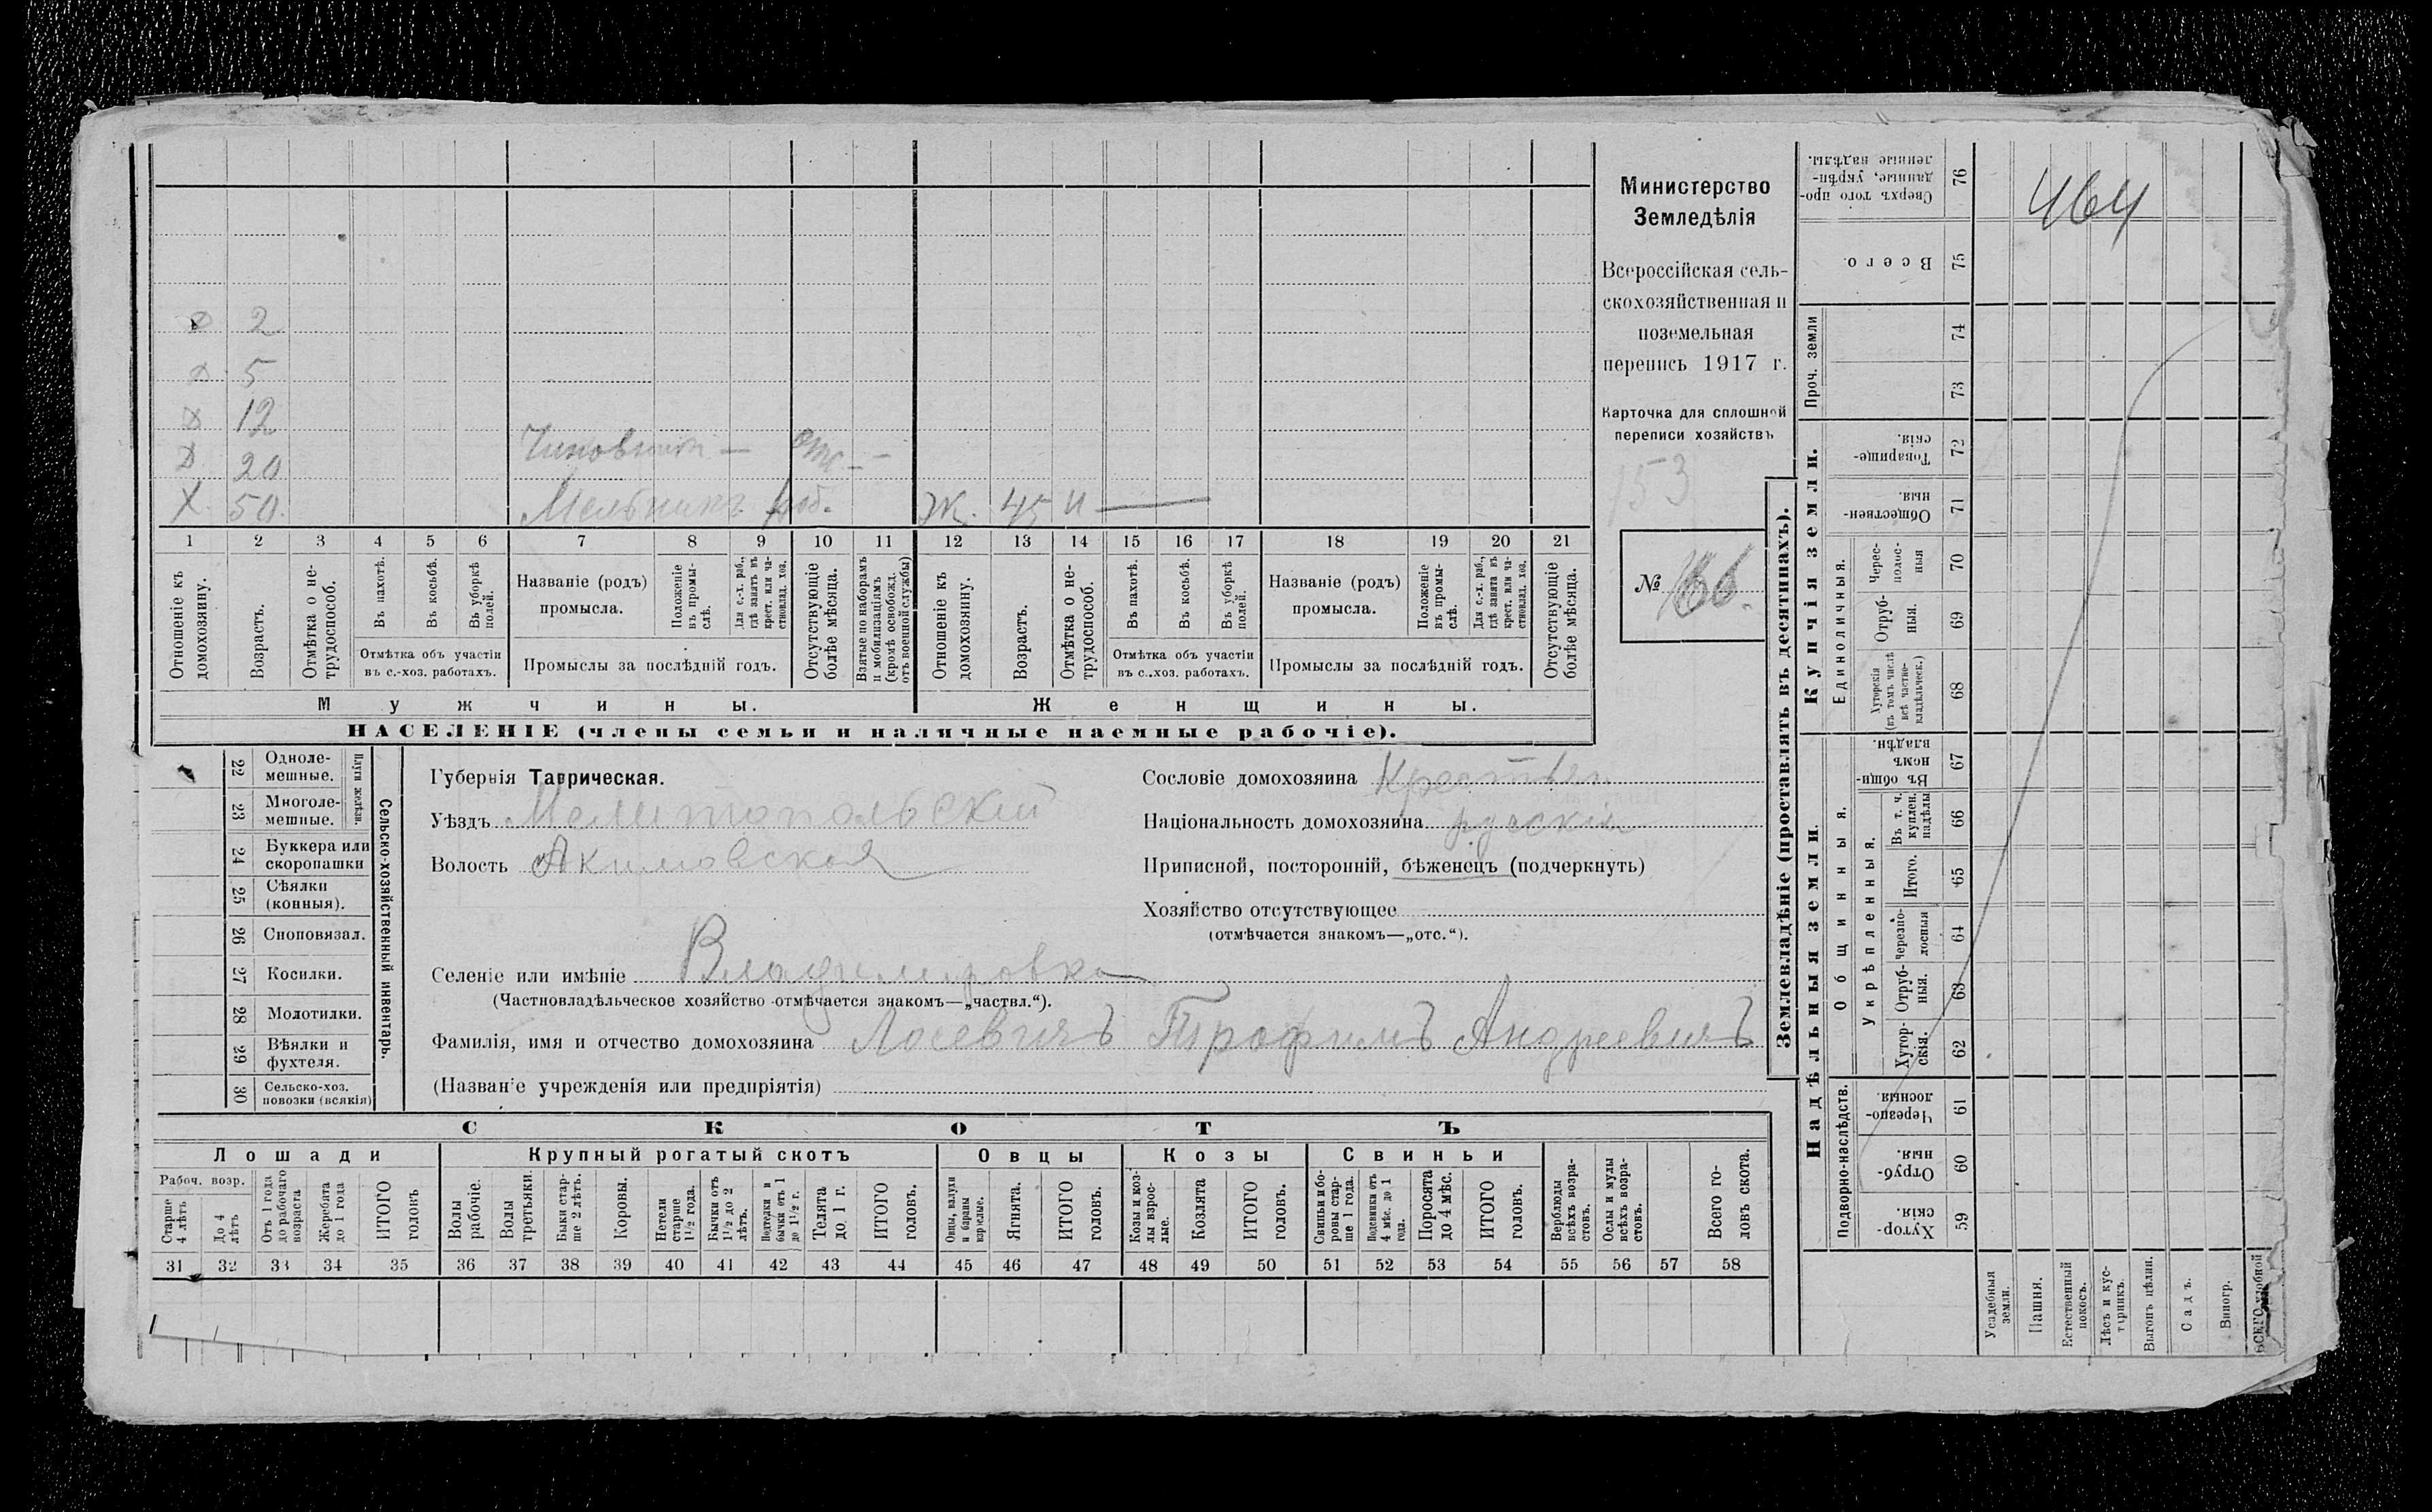 Министерство
Земледѣлія
Всероссійская сель-
скохозяйственная и
поземельная
перепись 1917 г.
Карточка для сплошной
переписи хозяйствъ
153
№ 166.
464
2
5
12
20 Чиновник — отс - -
Х 50. Мельникъ раб. Ж. 45 н —
1 2 3 4 5 6 7 8 9 10 11 12 13 14 15 16 17 18 19 20 21
Отношеніе къ домохозяину.
Возрастъ.
Отмѣтка о не-трудоспособ.
Въ пахотѣ.
Въ косьбѣ.
Въ уборкѣ полей.
Отмѣтка объ участіи
въ с.-хоз. работахъ.
Названіе (родъ)
промысла.
Положеніе въ промы-слѣ.
Для с.-х. раб., гдѣ занятъ въ крест. или ча-стновлад. хоз.
Промыслы за послѣдній годъ.
Отсутствующіе болѣе мѣсяца.
Взятые по наборамъ и мобилизаціямъ (кромѣ освобожд. отъ военной службы)
Отношеніе къ домохозяину.
Возрастъ.
Отмѣтка о не-трудоспособ.
Въ пахотѣ.
Въ косьбѣ.
Въ уборкѣ полей.
Отмѣтка объ участіи
въ с.-хоз. работахъ.
Названіе (родъ)
промысла.
Положеніе въ промы-слѣ.
Для с.-х. раб., гдѣ занята въ крест. или ча-стновлад. хоз.
Промыслы за послѣдній годъ.
Отсутствующіе болѣе мѣсяца.
Мужчины. Женщины.
НАСЕЛЕНІЕ (члены семьи и наличные наемные рабочіе).
Сельско-хозяйственный инвентарь.
Плуги желѣзн.
22 Одноле-мешные.
23 Многоле-мешные.
24 Буккера или скоропашки
25 Сѣялки (конныя).
26 Сноповязал.
27 Косилки.
28 Молотилки.
29 Вѣялки и фухтеля.
30 Сельско-хоз. повозки (всякія)
Губернія Таврическая.
Уѣздъ Мелитопольскій
Волость Акимовская
Сословіе домохозяина Крестьян
Національность домохозяина русскій
Приписной, посторонній, бѣженецъ (подчеркнуть)
Хозяйство отсутствующее
(отмѣчается знакомъ—„отс.“).
Селеніе или имѣніе Владимировка
(Частновладѣльческое хозяйство отмѣчается знакомъ—„частвл.“).
Фамилія, имя и отчество домохозяина Лосевичъ Трофимъ Андреевичъ
(Названіе учрежденія или предпріятія)
СКОТЪ
Лошади Крупный рогатый скотъ Овцы Козы Свиньи
Рабоч. возр.
Старше 4 лѣтъ
До 4 лѣтъ
Отъ 1 года до рабочаго возраста
Жеребята до 1 года
ИТОГО головъ
Волы рабочіе.
Волы третьяки.
Быки стар-ше 2 лѣтъ.
Коровы.
Нетели старше 1½ года.
Бычки отъ 1½ до 2 лѣтъ.
Подтелки и бычки отъ 1 до 1½ г.
Телята до 1 г.
ИТОГО головъ.
Овцы, валухи и бараны взрослые.
Ягнята.
ИТОГО головъ.
Козы и коз-лы взрос-лые.
Козлята
ИТОГО головъ.
Свиньи и бо-ровы стар-ше 1 года.
Подсвинки отъ 4 мѣс. до 1 года.
Поросята до 4 мѣс.
ИТОГО головъ.
Верблюды всѣхъ возра-стовъ.
Ослы и мулы всѣхъ возра-стовъ.
Всего го-ловъ скота.
31 32 33 34 35 36 37 38 39 40 41 42 43 44 45 46 47 48 49 50 51 52 53 54 55 56 57 58
Землевладѣніе (проставлять въ десятинахъ).
Купчія земли.
Надѣльныя земли.
Сверхъ того про-данные, укрѣп-ленные надѣлы. 76
Всего. 75
Проч. земли 74 73
Товарище-скія. 72
Обществен-ныя. 71
Единоличныя.
Черес-полос-ныя 70
Отруб-ныя. 69
Хуторскія (въ томъ числѣ всѣ частно-владѣльческ.) 68
Общинныя.
Въ общи-номъ владѣн. 67
Укрѣпленныя.
Въ т. ч. куплен. надѣлы 66
Итого. 65
Черезпо-лосныя 64
Отруб-ныя. 63
Хутор-скія. 62
Подворно-наслѣдств.
Черезпо-лосныя. 61
Отруб-ныя. 60
Хутор-скія. 59
Усадебныя земли.
Пашня.
Естественный покосъ.
Лѣсъ и кус-тарникъ.
Выгонъ цѣлин.
Садъ.
Виногр.
ВСЕГО удобной